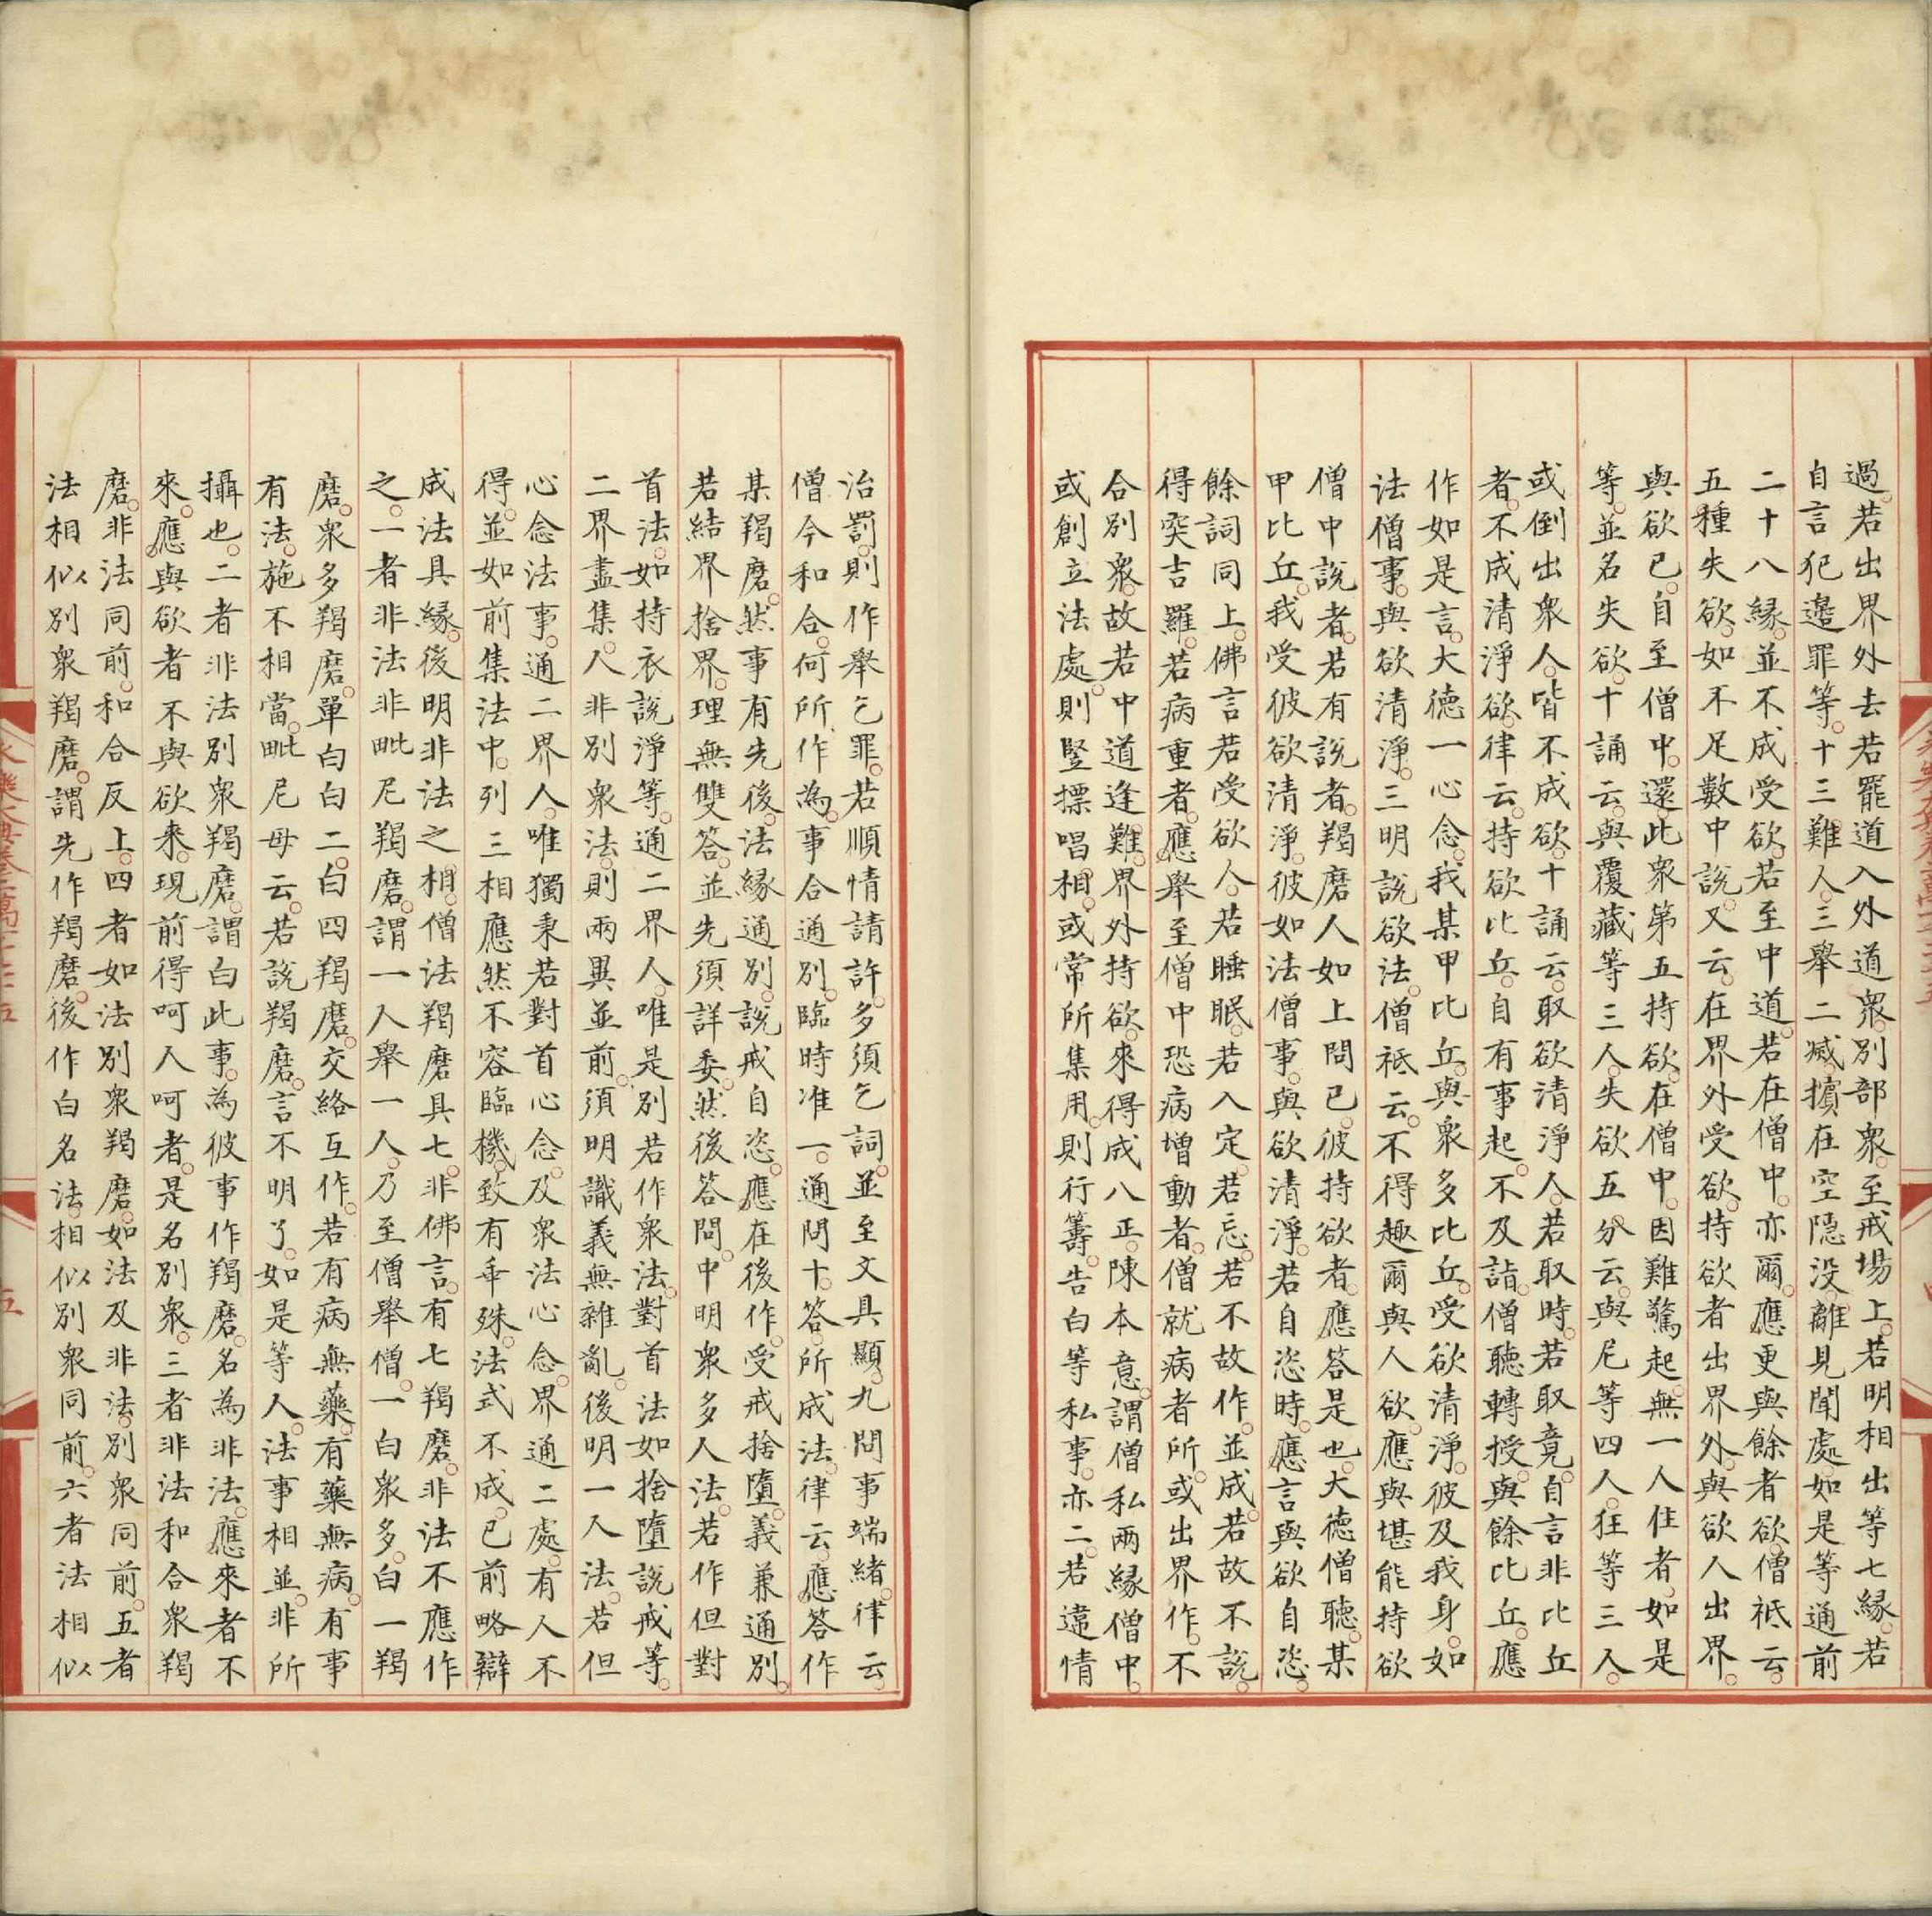 過若出界外去若罷道入外道衆別部衆至戒場上若明相出等七緣若
自言犯邊罪等十三難人三舉二滅擯在空隱没離見聞處如是等通前
二十八緣並不成受欲若至中道若在僧中亦爾應更與餘者欲僧祇云
五種失欲如不足數中說又云在界外受欲持欲者出界外與欲人出界
與欲已自至僧中還此衆第五持欲在僧中因難驚起無一人住者如是
等並名失欲十誦云與覆藏等三人失欲五分云與尼等四人狂等三人
或倒出衆人皆不成欲十誦云取欲清淨人若取時若取竟自言非比丘
者不成清淨欲律云持欲比丘自有事起不及詣僧聽轉授與餘比丘應
作如是言大德一心念我某甲比丘與衆多比丘受欲清淨彼及我身如
法僧事與欲清淨三明說欲法僧祇云不得趣爾與人欲應與堪能持欲
僧中說者若有說者羯磨人如上問已彼持欲者應答是也大德僧聽某
甲比丘我受彼欲清淨彼如法僧事與欲清淨若自恣時應言與欲自恣
餘詞同上佛言若受欲人若睡眠若入定若忘若不故作並成若故不說
得突吉羅若病重者應舉至僧中恐病增動者僧就病者所或出界作不
合別衆故若中道逢難界外持欲來得成八正陳本意謂僧私兩緣僧中
或創立法處則竪摽唱相或常所集用則行籌告白等私事亦二若違情
治罰則作舉乞罪若順情請許多須乞詞並至文具顯九問事端緒律云
僧今和合何所作為事合通別臨時准一通問十答所成法律云應答作
某羯磨然事有先後法緣通別說戒自恣應在後作受戒捨墮義兼通別
若結界捨界理無雙答並先須詳委然後答問中明衆多人法若作但對
首法如持衣說淨等通二界人唯是別若作衆法對首法如捨墮說戒等
二界盡集人非別衆法則兩異並前須明識義無雜亂後明一人法若但
心念法事通二界人唯獨秉若對首心念及衆法心念界通二處有人不
得並如前集法中列三相應然不容臨機致有乖殊法式不成已前略辯
成法具緣後明非法之相僧法羯磨具七非佛言有七羯磨非法不應作
之一者非法非毗尼羯磨謂一人舉一人乃至僧舉僧一白衆多白一羯
磨衆多羯磨單白白二白四羯磨交絡互作若有病無藥有藥無病有事
有法施不相當毗尼母云若說羯磨言不明了如是等人法事相並非所
攝也二者非法別衆羯磨謂白此事為彼事作羯磨名為非法應來者不
來應與欲者不與欲來現前得呵人呵者是名別衆三者非法和合衆羯
磨非法同前和合反上四者如法別衆羯磨如法及非法別衆同前五者
法相似別衆羯磨謂先作羯磨後作白名法相似別衆同前六者法相似
五